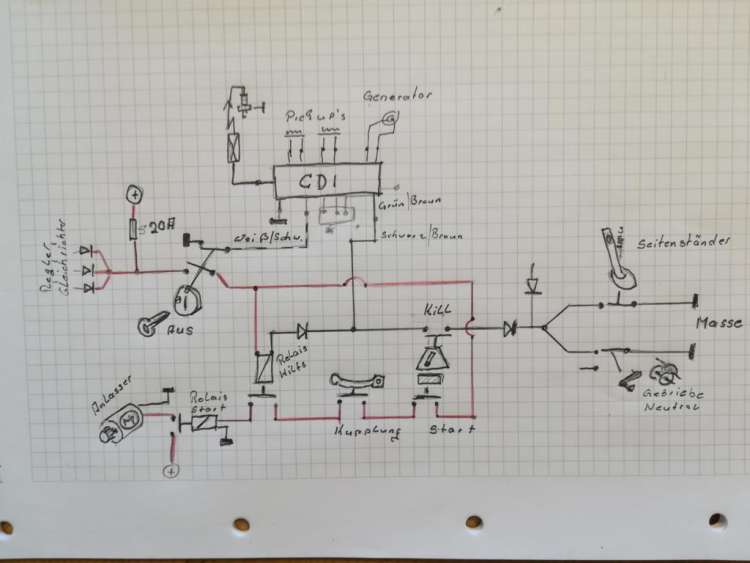 Generator
Pickup's
CDI
Grün/Braun
Schwarz/Braun
weiß/Schw.
+
20A
Regler
Gleichrichter
Aus
Kill
Seitenständer
Masse
Relais
Hilfs
Getriebe
Neutral
Anlasser
Relais
Start
Kupplung
Start
+